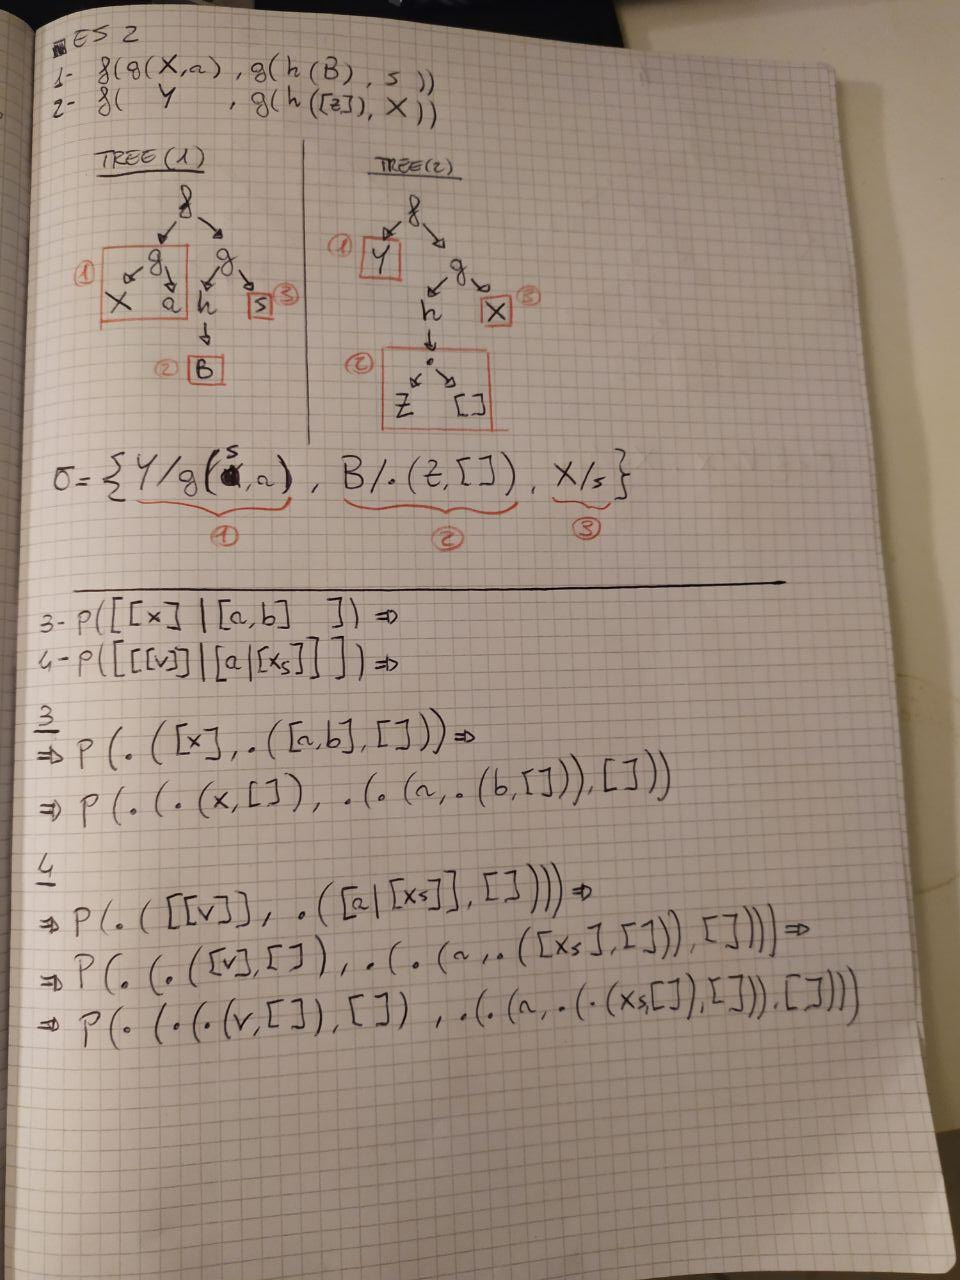 ES 2
1- f(g(X,a), g(h(B), s))
2- f( Y , g(h([z]), X))
TREE(1)
TREE(2)
f
g g
① X a h s ③
② B
f
① Y g
h X ③
② .
Z []
σ= {Y/g(s,a), B/.(Z,[]), X/s}
① ② ③
3- p([[x]|[a,b] ]) ⇒
4- p([[[v]]|[a|[xs]] ]) ⇒
3
⇒ P(.([x], .([a,b],[])) ⇒
⇒ P(.(.(x,[]), .(.(a,.(b,[])),[]))
4
⇒ P(.([[v]], .([a|[xs]],[]))) ⇒
⇒ P(.(.([v],[]), .(.(a,.([xs],[])),[]))) ⇒
⇒ P(.(.(.(v,[]),[]), .(.(a,.(.(xs,[]),[])),[])))